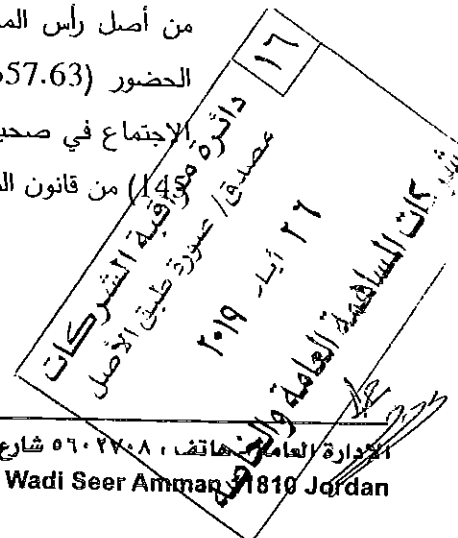 من أصل رأس
الحضور (57.63
الاجتماع في
145) من قانون
١٦
دائرة مراقبة الشركات
مصدق / صورة طبق الأصل
٢٦ أيار ٢٠١٩
شركات المساهمة العامة والخاصة
الادارة العامة هاتف ، ٥٦٠٢٧٠٨ شارع
Wadi Seer Amman 11810 Jordan